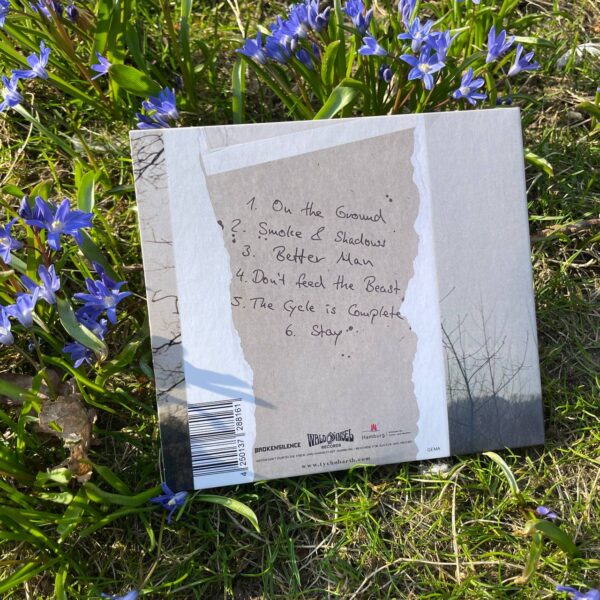 1. On the Ground
2. Smoke & Shadows
3. Better Man
4. Don't feed the Beast
5. The Cycle is Complete
6. Stay
4 250137 288161
BROKENSILENCE
WALDVOGEL
RECORDS
Hamburg
GEMA
www.tychobarth.com